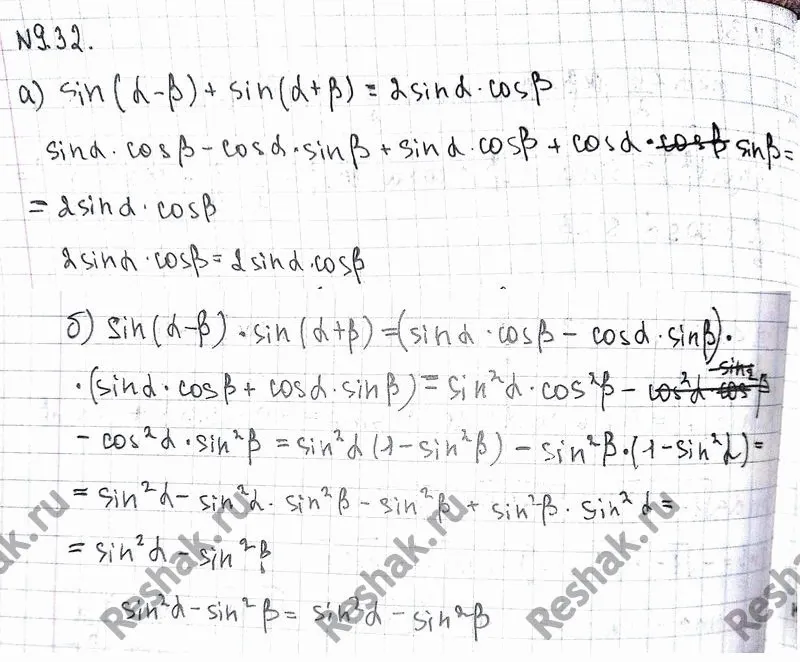 N9.32.
а) sin(α-β)+ sin(α+β)= 2sinα·cosβ
sinα·cosβ-cosα·sinβ+sinα·cosβ+cosα·sinβ=
= 2sinα·cosβ
2sinα·cosβ=2sinα·cosβ
б) sin(α-β)·sin(α+β)=(sinα·cosβ - cosα·sinβ)·
·(sinα·cosβ+cosα·sinβ)= sin²α·cos²β -
- cos²α·sin²β = sin²α(1-sin²β) - sin²β·(1-sin²α)=
= sin²α-sin²α·sin²β-sin²β+ sin²β·sin²α=
= sin²α-sin²β
sin²α-sin²β= sin²α-sin²β
Reshak.ru Reshak.ru Reshak.ru